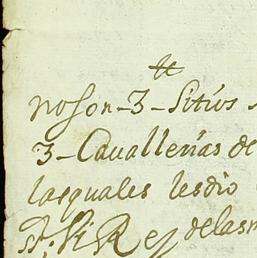 tt
no son - 3 - sitios
3 - Cauallerias de
las quales les dio
Sr. Vi Rey de las